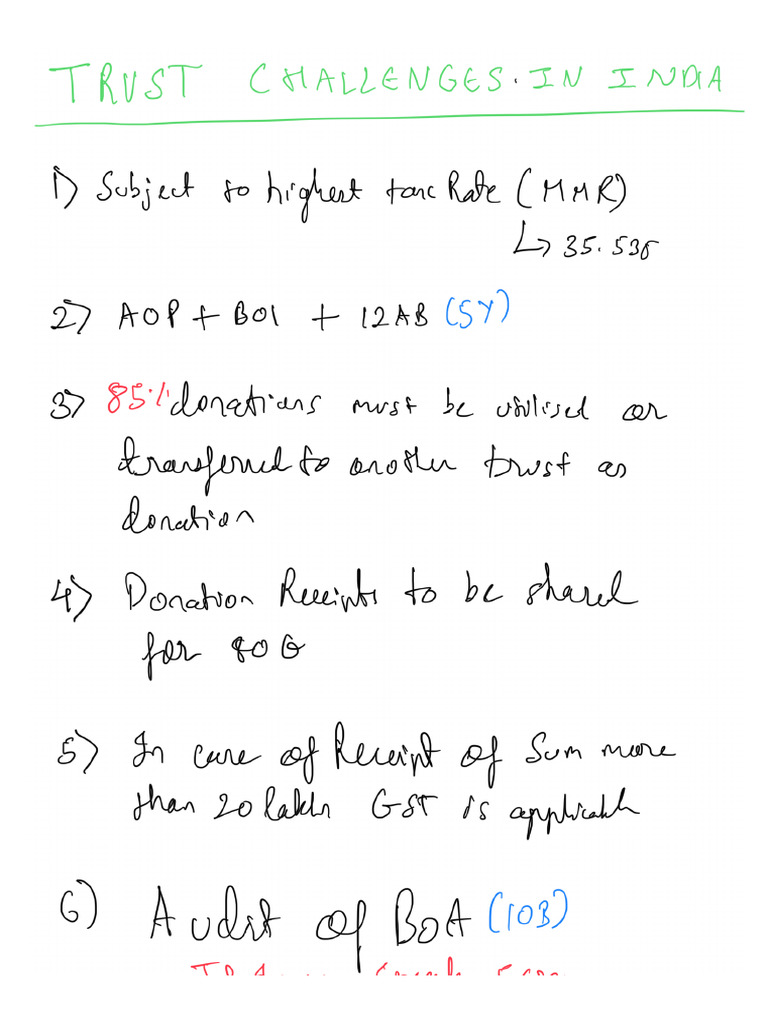 TRUST CHALLENGES. IN INDIA
1) Subject to highest tax Rate (MMR)
↳ 35.535
2) AOP + BOI + 12AB (5Y)
3) 85% donations must be utilised or
transferred to another trust as
donation
4) Donation Receipts to be shared
for 80G
5) In case of Receipt of Sum more
than 20 lakh GST is applicable
6) Audit of BOA (10B)